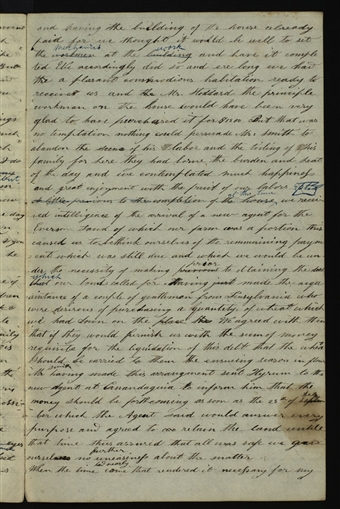 and having the building of the house already
paid for we thought it would be well to set
mechanics work
the workmen at the building and have it comple
ted We accordingly did so and ere long we had
a pleasant commodious habitation ready to
receive us and Mr. Stoddard the principle
workman on the house would have been very
glad to have purchased it for $1500 But that was
no temptation nothing would persuade Mr Smith to
abandon the scene of his labor and the toiling of his
family for here they had borne the burden and heat
of the day and we contemplated much happiness
and great enjoyment with the fruit of our labors
of this time
previous to the completion of the house, we recei
ved intelligence of the arrival of a new agent for the
Everson land of which our farm was a portion this
caused us to bethink ourselves of the remaining paym
ent which was still due and which we would be un
prior
der the necessity of making previous to obtaining the deed
which
that our bond called for Having just made the acqua
intance of a couple of gentlemen from Pensylvania who
were desirous of purchasing a quantity of wheat which
we had sown on the place We agreed with them
that if they would furnish us with the sum of money
requisite for the liquidation of this debt that the wheat
should be carried to them the ensuing season in flour
Smith
Mr having made this arrangement sent Hyrum to the
new agent at Canandaguia to inform him that the
money should be forthcoming as soon as the 25th of
ber which the Agent said would answer every
purpose and agreed to retain the land untill
that time thus assured that all was safe we gave
further
ourselves no uneasiness about the matter
When the time came that rendered it necessary for my